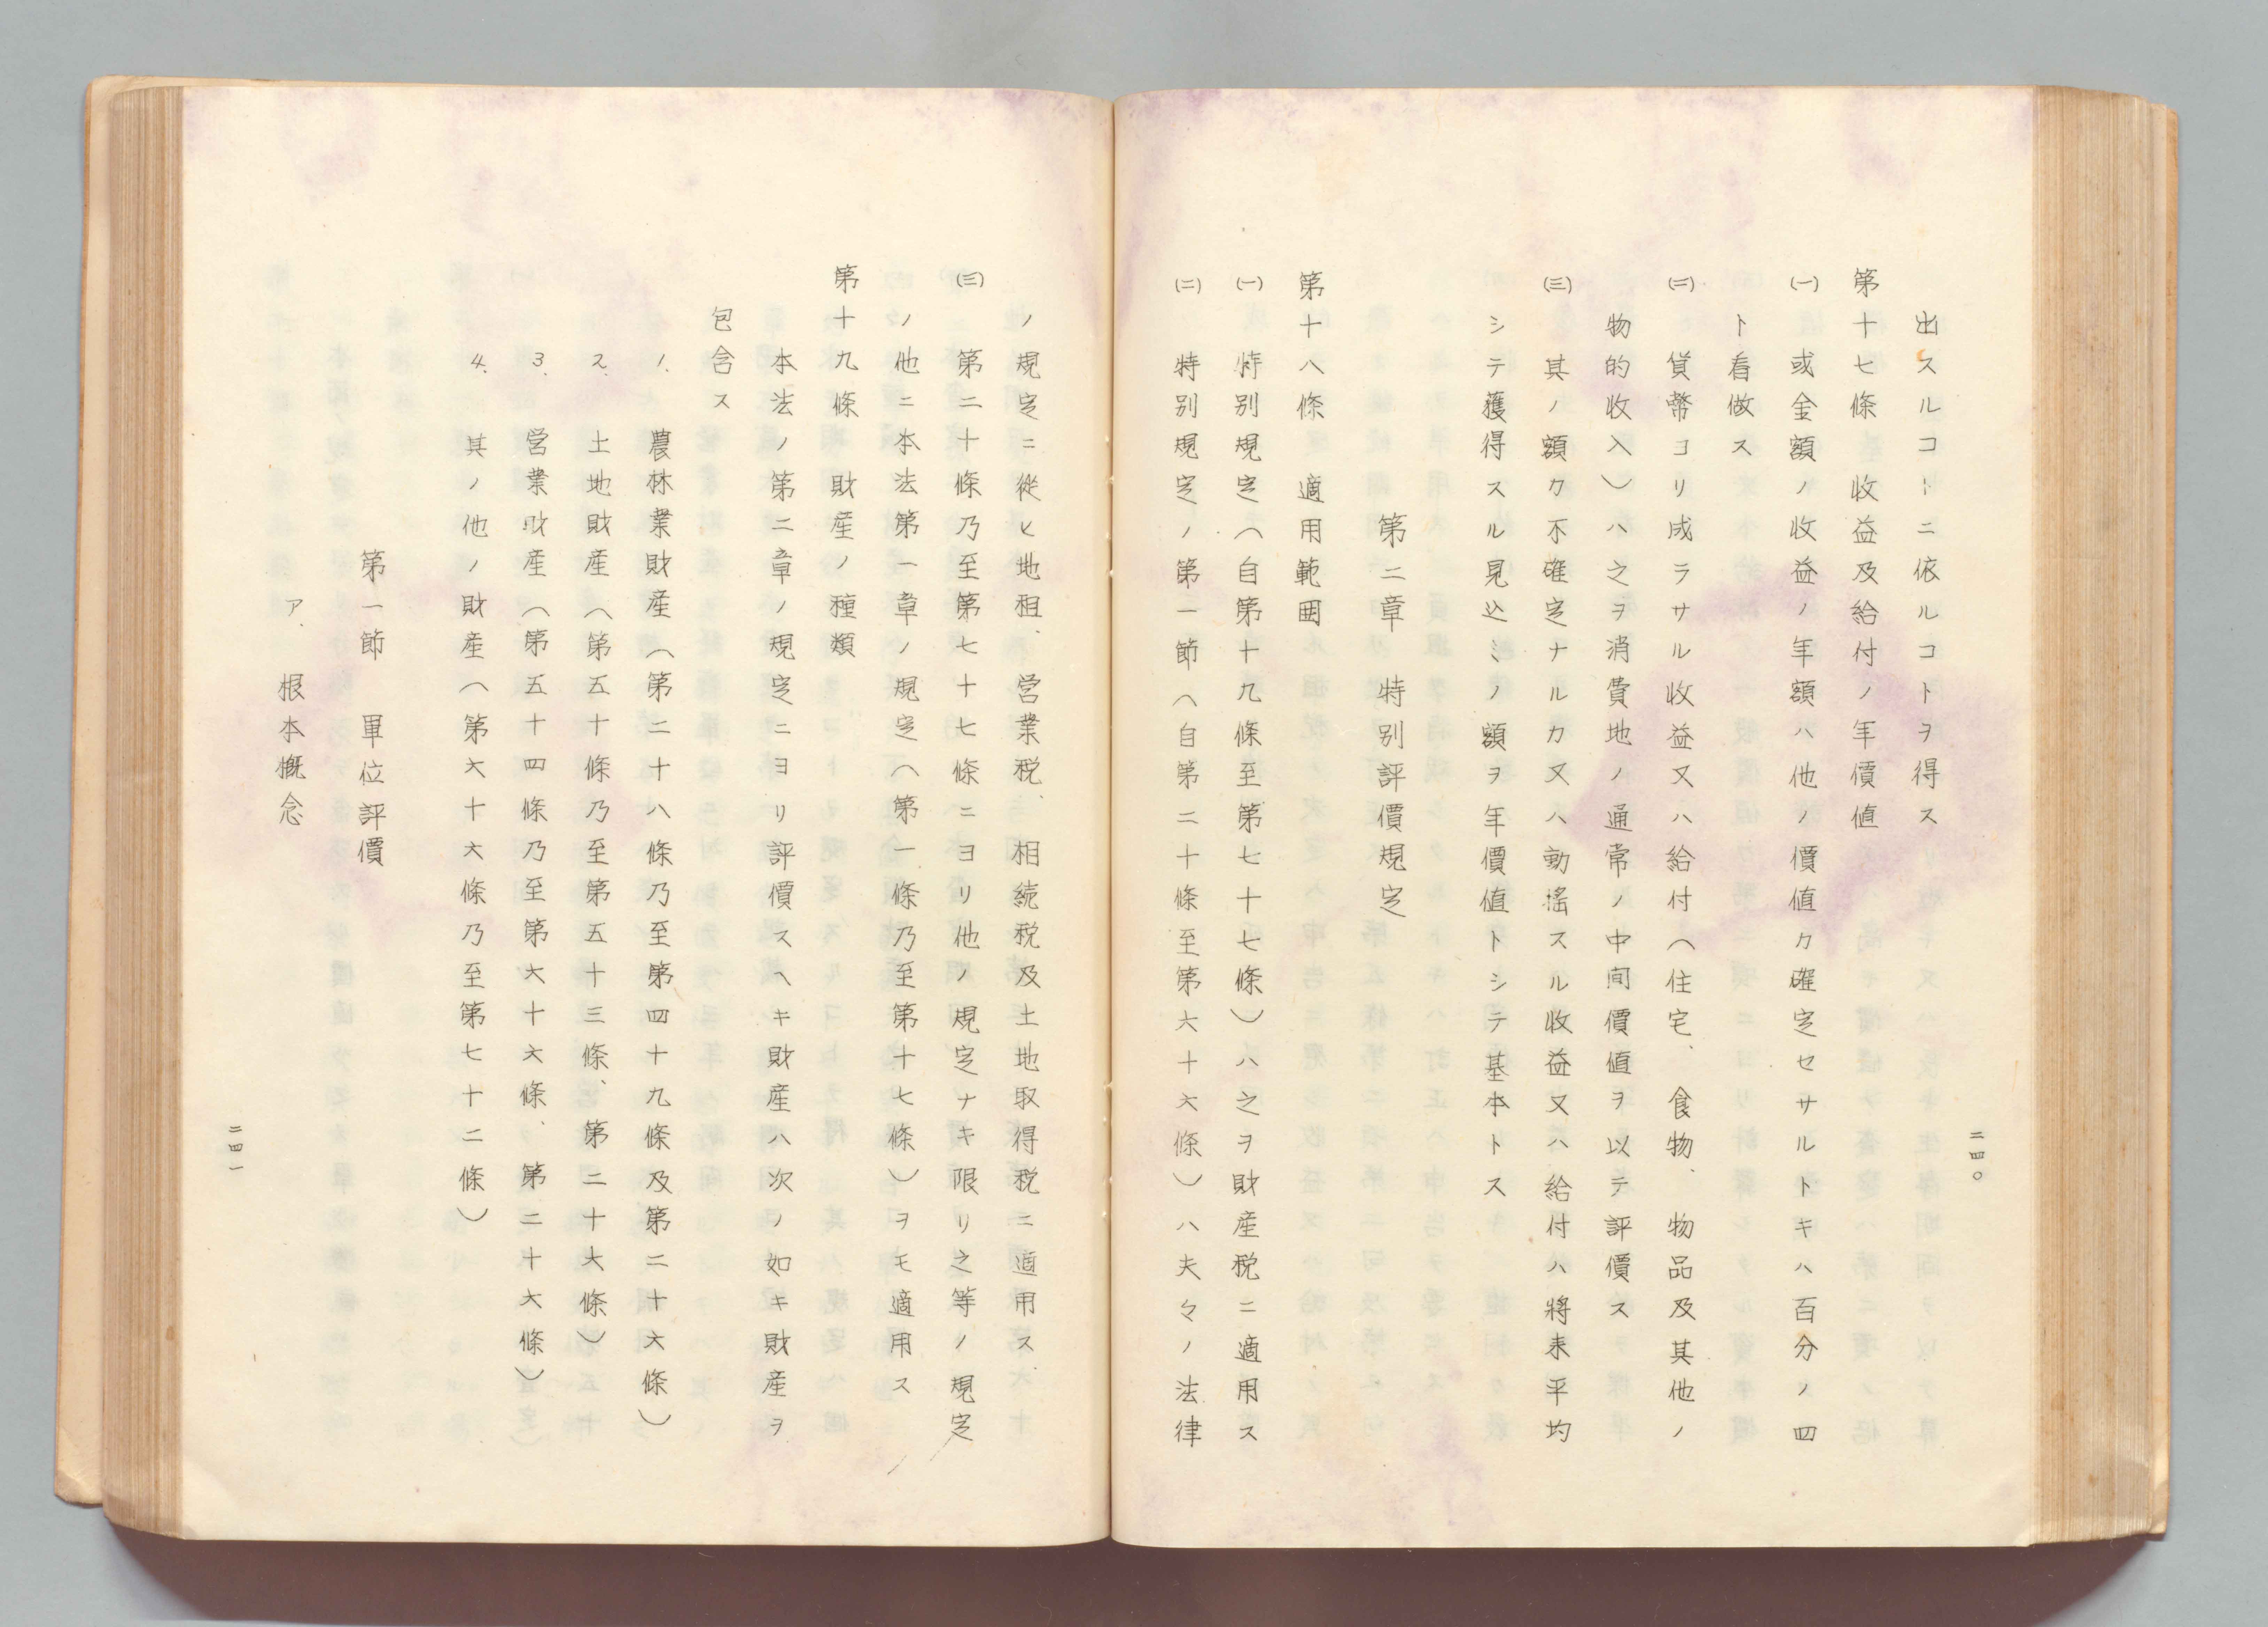 出スルコトニ依ルコトヲ得ス
第十七條　收益及給付ノ年價値
㈠　或金額ノ收益ノ年額ハ他ノ價値カ確定セサルトキハ百分ノ四
ト看做ス
㈡　貨幣コリ成ラサル收益又ハ給付（住宅、食物、物品及其他ノ
物的收入）ハ之ヲ消費地ノ通常ノ中间價値ヲ以テ評價ス
㈢　其ノ額カ不確定ナルカ又ハ動搖スル收益又ハ給付ハ將来平均
シテ獲得スル見込ミノ額ヲ年價値トシテ基本トス
第二章　特別評價規定
第十八條　適用範囲
㈠　特別規定（自第十九條至第七十七條）ハ之ヲ財産税ニ適用ス
㈡　特別規定ノ第一節（自第二十條至第六十六條）ハ夫々ノ法律
二四〇
ノ規定ニ從ヒ地租、営業税、相続税及土地取得税ニ適用ス
㈢　第二十條乃至第七十七條ニヨリ他ノ規定ナキ限リ之等ノ規定
ノ他ニ本法第一章ノ規定（第一條乃至第十七條）ヲモ適用ス
第十九條　財産ノ種類
本法ノ第二章ノ規定ニヨリ評價スヘキ財産ハ次ノ如キ財産ヲ
包含ス
1.　農林業財産（第二十八條乃至第四十九條及第二十六條）
2.　土地財産（第五十條乃至第五十三條、第二十六條）
3.　営業財産（第五十四條乃至第六十六條、第二十六條）
4.　其ノ他ノ財産（第六十六條乃至第七十二條）
第一節　單位評價
ア.　根本概念
二四一